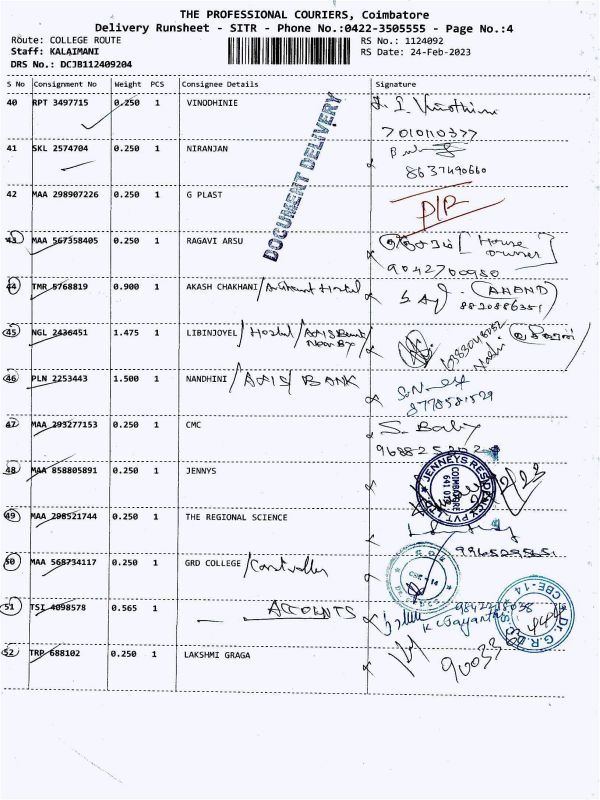 THE PROFESSIONAL COURIERS, Coimbatore
Delivery Runsheet - SITR - Phone No.:0422-3505555 - Page No.:4
Route: COLLEGE ROUTE RS No.: 1124092
Staff: KALAIMANI RS Date: 24-Feb-2023
DRS No.: DCJB112409204
S No Consignment No Weight PCS Consignee Details Signature
40 RPT 3497715 0.250 1 VINODHINIE
7010110377
DOCUMENT DELIVERY
41 SKL 2574704 0.250 1 NIRANJAN
8637490660
42 MAA 298907226 0.250 1 G PLAST
43 MAA 567358405 0.250 1 RAGAVI ARSU [House owner]
9042700980
44 TMR 5768819 0.900 1 AKASH CHAKHANI ANAND
8820886351
45 NGL 2436451 1.475 1 LIBINJOYEL / Hostel / AXIS Bank Near By
46 PLN 2253443 1.500 1 NANDHINI / AXIS BANK
8778581529
47 MAA 293277153 0.250 1 CMC S. Baby
48 MAA 858805891 0.250 1 JENNYS
JENNEYS RESIDENCY PVT. LTD.
COIMBATORE
49 MAA 298521744 0.250 1 THE REGIONAL SCIENCE
50 MAA 568734117 0.250 1 GRD COLLEGE / Controller
CBE - 14
51 TSI 4098578 0.565 1 ACCOUNTS
Dr. G.R.
CBE-14
52 TRP 688102 0.250 1 LAKSHMI GRAGA
90033